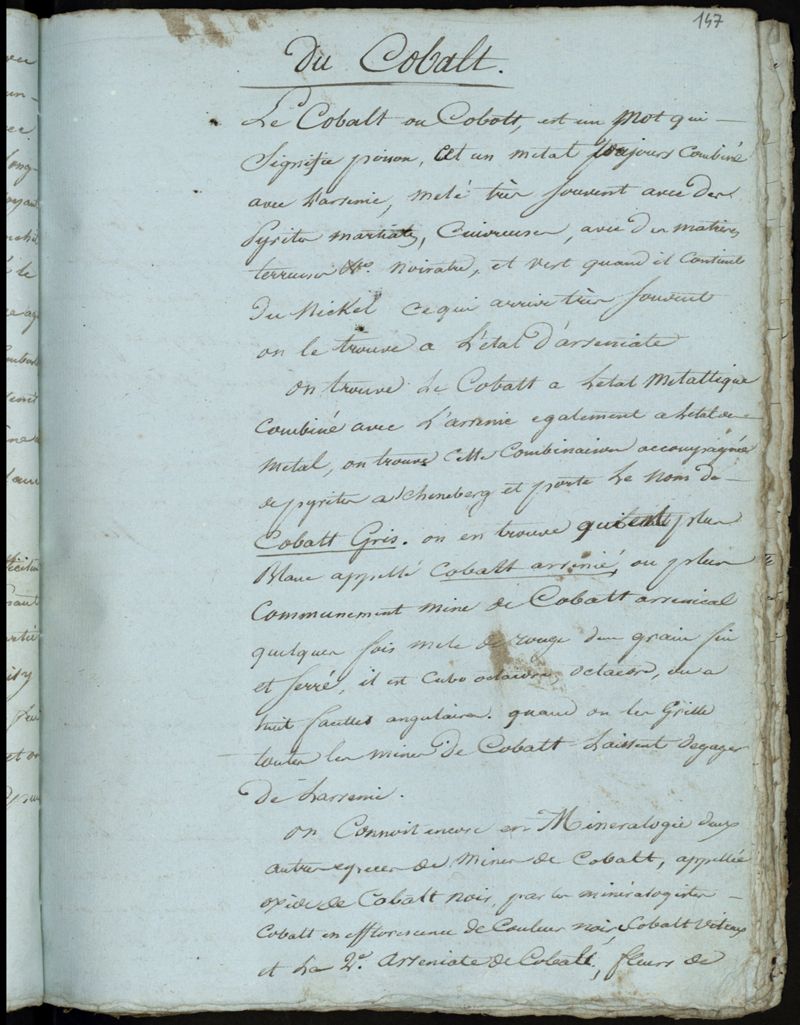 147
Du Cobalt.
Le Cobalt ou Cobolt, est un Mot qui
Signifie poison, est un metal toujours Combiné
avec L'arsenic, melé très Souvent avec des
Pyrites martiales, Cuivreuses, avec des matieres
terreuses &c. noiratre, et vert quand il Contient
Du Nickel ce qui arrive très Souvent
on le trouve a L'état d'arseniate
on trouve Le Cobalt a Letat Metallique
Combiné avec L'arsenic egalement a Letat de
Metal, on trouve Cette Combinaison accompagnée
de pyrites a Schneeberg et porte Le Nom de
Cobalt Gris. on en trouve qui est plus
Blanc appellé Cobalt arsenié, ou plus
Communement mine de Cobalt arsenical
quelques fois melé de rouge d'un grain fin
et serré, il est Cubo octaedre, octaedre, ou a
huit facettes angulaires. quand on les Grille
toutes les mines de Cobalt Laissent degager
De Larsenic.
on Connoit encore en Mineralogie deux
autres especes de Mines de Cobalt, appellée
oxide de Cobalt noir, par les minéralogistes
Cobalt en efflorescence de Couleur noire Cobalt vitreux
et La 2e. Arseniate de Cobalt, fleurs de